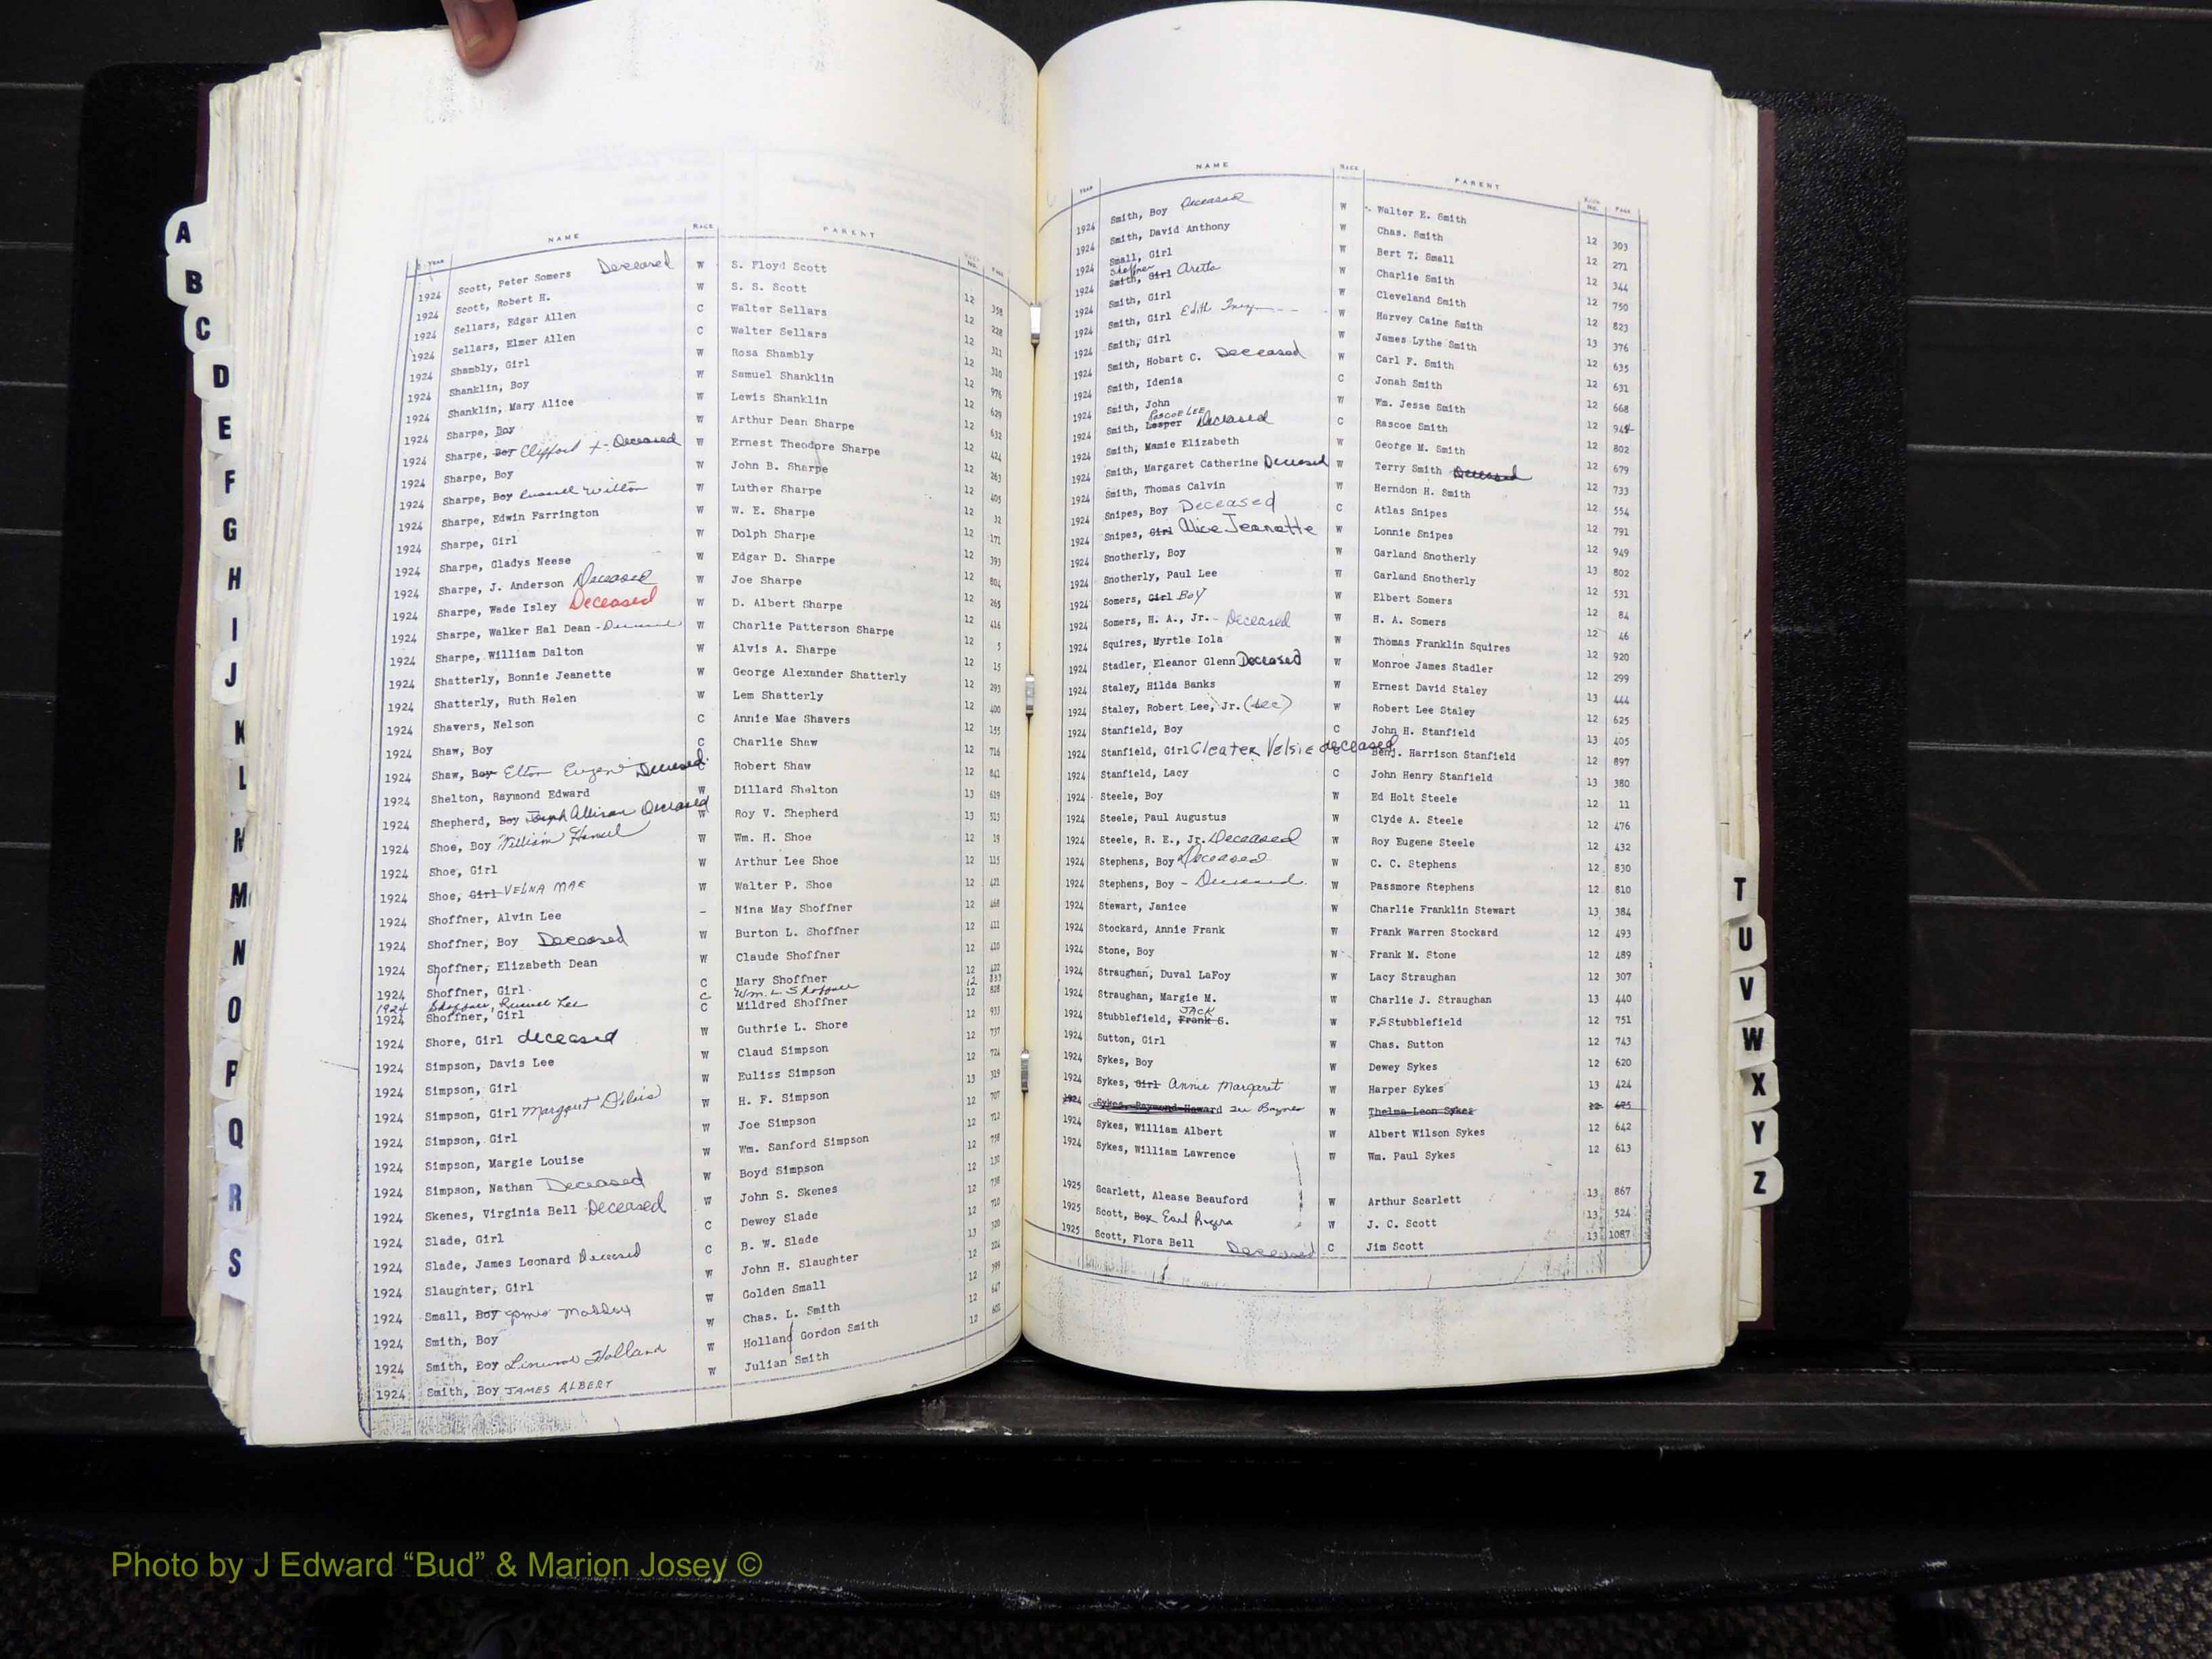 A
B
C
D
E
F
G
H
I
J
K
L
M
N
O
P
Q
R
S
YEAR NAME RACE PARENT
1924 Scott, Peter Somers Deceased W S. Floyd Scott 12 358
1924 Scott, Robert H. W S. S. Scott 12 228
1924 Sellars, Edgar Allen C Walter Sellars 12 311
1924 Sellars, Elmer Allen C Walter Sellars 12 310
1924 Shambly, Girl W Rosa Shambly 12 976
1924 Shanklin, Boy W Samuel Shanklin 12 629
1924 Shanklin, Mary Alice W Lewis Shanklin 12 632
1924 Sharpe, Boy W Arthur Dean Sharpe 12 424
1924 Sharpe, Boy Clifford Deceased W Ernest Theodore Sharpe 12 263
1924 Sharpe, Boy W John B. Sharpe 12 405
1924 Sharpe, Boy Russell Wilton W Luther Sharpe 12 32
1924 Sharpe, Edwin Farrington W W. E. Sharpe 12 171
1924 Sharpe, Girl W Dolph Sharpe 12 393
1924 Sharpe, Gladys Neese W Edgar D. Sharpe 12 804
1924 Sharpe, J. Anderson Deceased W Joe Sharpe 12 265
1924 Sharpe, Wade Isley Deceased W D. Albert Sharpe 12 416
1924 Sharpe, Walker Hal Dean - Deceased W Charlie Patterson Sharpe 12 5
1924 Sharpe, William Dalton W Alvis A. Sharpe 12 15
1924 Shatterly, Bonnie Jeanette W George Alexander Shatterly 12 293
1924 Shatterly, Ruth Helen W Lem Shatterly 12 400
1924 Shavers, Nelson C Annie Mae Shavers 12 155
1924 Shaw, Boy C Charlie Shaw 12 716
1924 Shaw, Boy Elton Eugene Deceased Robert Shaw 12 841
1924 Shelton, Raymond Edward W Dillard Shelton 13 619
1924 Shepherd, Boy Joseph Allison Deceased W Roy V. Shepherd 13 513
1924 Shoe, Boy William W Wm. H. Shoe 12 19
1924 Shoe, Girl W Arthur Lee Shoe 12 115
1924 Shoe, Girl VELNA MAE W Walter P. Shoe 12 421
1924 Shoffner, Alvin Lee - Nina May Shoffner 12 468
1924 Shoffner, Boy Deceased W Burton L. Shoffner 12 411
1924 Shoffner, Elizabeth Dean W Claude Shoffner 12 410
1924 Shoffner, Girl C Mary Shoffner 12 422
1924 Shoffner, Russell Lee C Wm. L. Shoffner 12 833
1924 Shoffner, Girl C Mildred Shoffner 12 828
1924 Shore, Girl deceased W Guthrie L. Shore 12 933
1924 Simpson, Davis Lee W Claud Simpson 12 737
1924 Simpson, Girl W Euliss Simpson 12 724
1924 Simpson, Girl Margaret W H. F. Simpson 13 319
1924 Simpson, Girl W Joe Simpson 12 707
1924 Simpson, Margie Louise W Wm. Sanford Simpson 12 712
1924 Simpson, Nathan Deceased W Boyd Simpson 12 758
1924 Skenes, Virginia Bell Deceased W John S. Skenes 12 130
1924 Slade, Girl C Dewey Slade 12 738
1924 Slade, James Leonard Deceased C B. W. Slade 12 710
1924 Slaughter, Girl W John H. Slaughter 13 320
1924 Small, Boy W Golden Small 12 224
1924 Smith, Boy W Chas. L. Smith 12 399
1924 Smith, Boy Linwood Holland W Holland Gordon Smith 12 647
1924 Smith, Boy JAMES ALBERT W Julian Smith 12 602
YEAR NAME RACE PARENT BOOK NO. PAGE
1924 Smith, Boy Deceased W Walter E. Smith 12 303
1924 Smith, David Anthony W Chas. Smith 12 271
1924 Small, Girl W Bert T. Small 12 344
1924 Shoffner Smith, Girl Aretta W Charlie Smith 12 750
1924 Smith, Girl W Cleveland Smith 12 823
1924 Smith, Girl Edith W Harvey Caine Smith 13 376
1924 Smith, Girl W James Lythe Smith 12 635
1924 Smith, Hobart C. Deceased W Carl F. Smith 12 631
1924 Smith, Idenia C Jonah Smith 12 668
1924 Smith, John W Wm. Jesse Smith 12 944
1924 Smith, Lesper ROSCOE LEE Deceased C Rascoe Smith 12 802
1924 Smith, Mamie Elizabeth W George M. Smith 12 679
1924 Smith, Margaret Catherine Deceased W Terry Smith Deceased 12 733
1924 Smith, Thomas Calvin W Herndon H. Smith 12 554
1924 Snipes, Boy Deceased C Atlas Snipes 12 791
1924 Snipes, Girl Alice Jeanette W Lonnie Snipes 12 949
1924 Snotherly, Boy W Garland Snotherly 13 802
1924 Snotherly, Paul Lee W Garland Snotherly 12 531
1924 Somers, Girl Boy W Elbert Somers 12 84
1924 Somers, H. A., Jr. - Deceased W H. A. Somers 12 46
1924 Squires, Myrtle Iola W Thomas Franklin Squires 12 920
1924 Stadler, Eleanor Glenn Deceased W Monroe James Stadler 12 299
1924 Staley, Hilda Banks W Ernest David Staley 13 444
1924 Staley, Robert Lee, Jr. (dec) W Robert Lee Staley 12 625
1924 Stanfield, Boy C John H. Stanfield 13 405
1924 Stanfield, Girl Cleater Velsie deceased Benj. Harrison Stanfield 12 897
1924 Stanfield, Lacy C John Henry Stanfield 13 380
1924 Steele, Boy W Ed Holt Steele 12 11
1924 Steele, Paul Augustus W Clyde A. Steele 12 476
1924 Steele, R. E., Jr. Deceased W Roy Eugene Steele 12 432
1924 Stephens, Boy Deceased W C. C. Stephens 12 830
1924 Stephens, Boy - Deceased W Passmore Stephens 12 810
1924 Stewart, Janice W Charlie Franklin Stewart 13 384
1924 Stockard, Annie Frank W Frank Warren Stockard 12 493
1924 Stone, Boy W Frank M. Stone 12 489
1924 Straughan, Duval LaFoy W Lacy Straughan 12 307
1924 Straughan, Margie M. W Charlie J. Straughan 13 440
1924 Stubblefield, Frank S. JACK W F.S Stubblefield 12 751
1924 Sutton, Girl W Chas. Sutton 12 743
1924 Sykes, Boy W Dewey Sykes 12 620
1924 Sykes, Girl Annie Margaret W Harper Sykes 13 424
1924 Sykes, Raymond Haward See Baynes W Thelma Leon Sykes 12 675
1924 Sykes, William Albert W Albert Wilson Sykes 12 642
1924 Sykes, William Lawrence W Wm. Paul Sykes 12 613
1925 Scarlett, Alease Beauford W Arthur Scarlett 13 867
1925 Scott, Boy Earl W J. C. Scott 13 524
1925 Scott, Flora Bell Deceased C Jim Scott 13 1087
T
U
V
W
X
Y
Z
Photo by J Edward “Bud” & Marion Josey ©